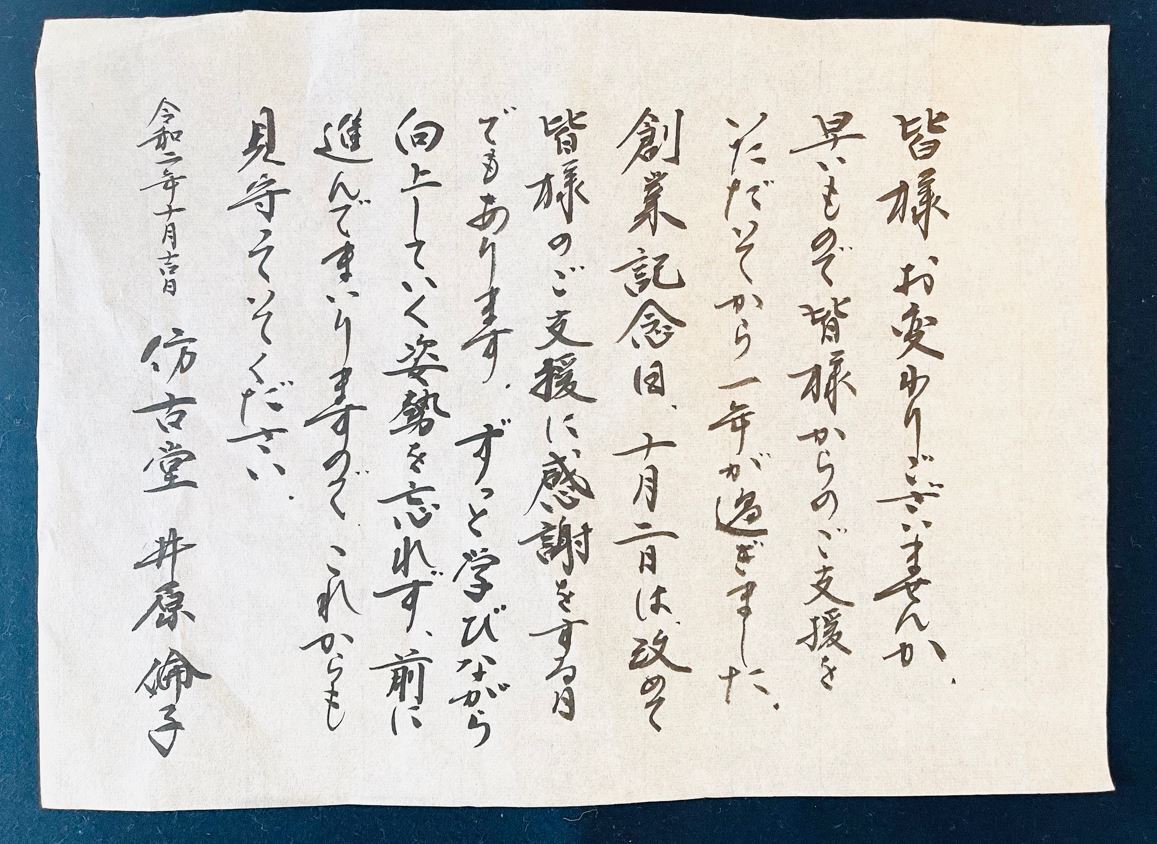 皆様 お変わりございませんか.
早いもので皆様からのご支援を
いただいてから一年が過ぎました.
創業記念日、十月二日は、改めて
皆様のご支援に、感謝をする日
でもあります. ずっと学びながら
向上していく姿勢を忘れず、前に
進んでまいりますので これからも
見守っていてください.
令和二年十月吉日 仿古堂 井原倫子